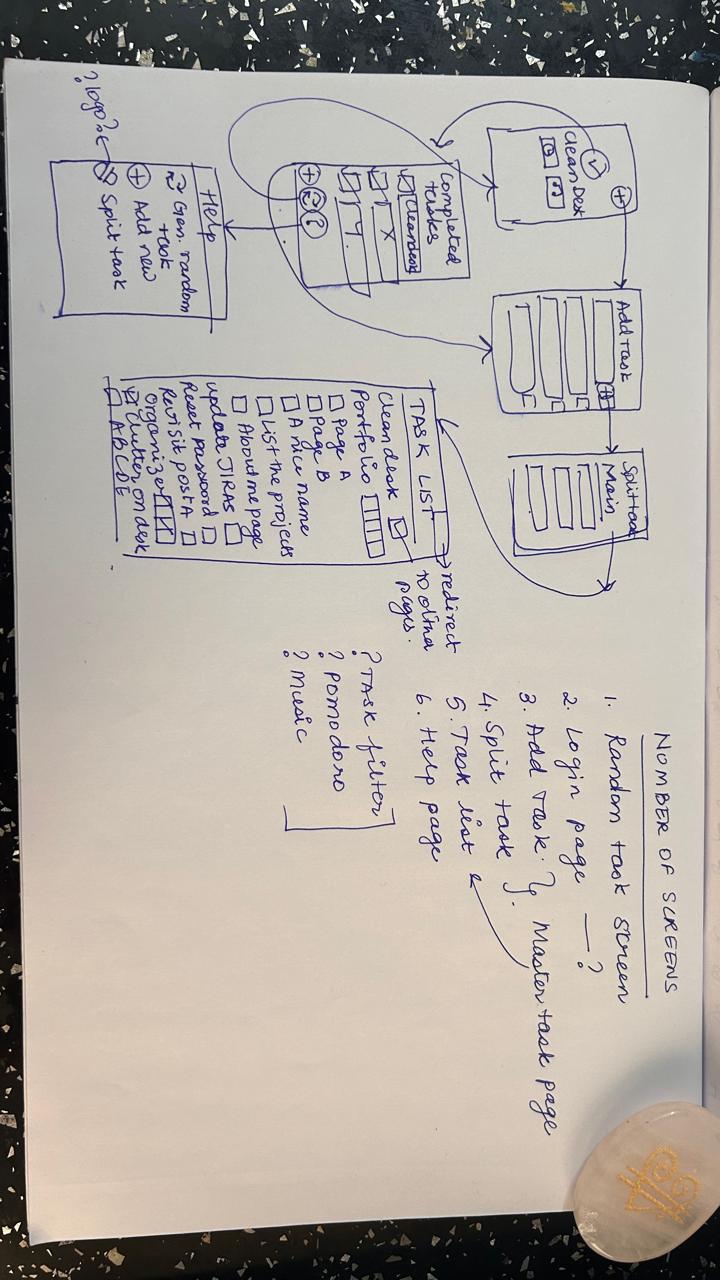 NUMBER OF SCREENS
1. Random task screen
2. Login page — ?
3. Add task. }
4. Split task }. Master task page
5. Task list
6. Help page
? TASK filter
? Pomodoro
? Music
+
Clean Desk
Add task
+
Split task
Main
Completed tasks
Cleandesk
X
Y
+
?
Help
Gen. random task
+ Add new
Split task
? logo?
TASK LIST
redirect to other pages.
Clean desk
Portfolio
Page A
Page B
A nice name
List the projects
About me page
Update JIRAS
Reset password
Revisit post A
Organize
Clutter on desk
ABCDE